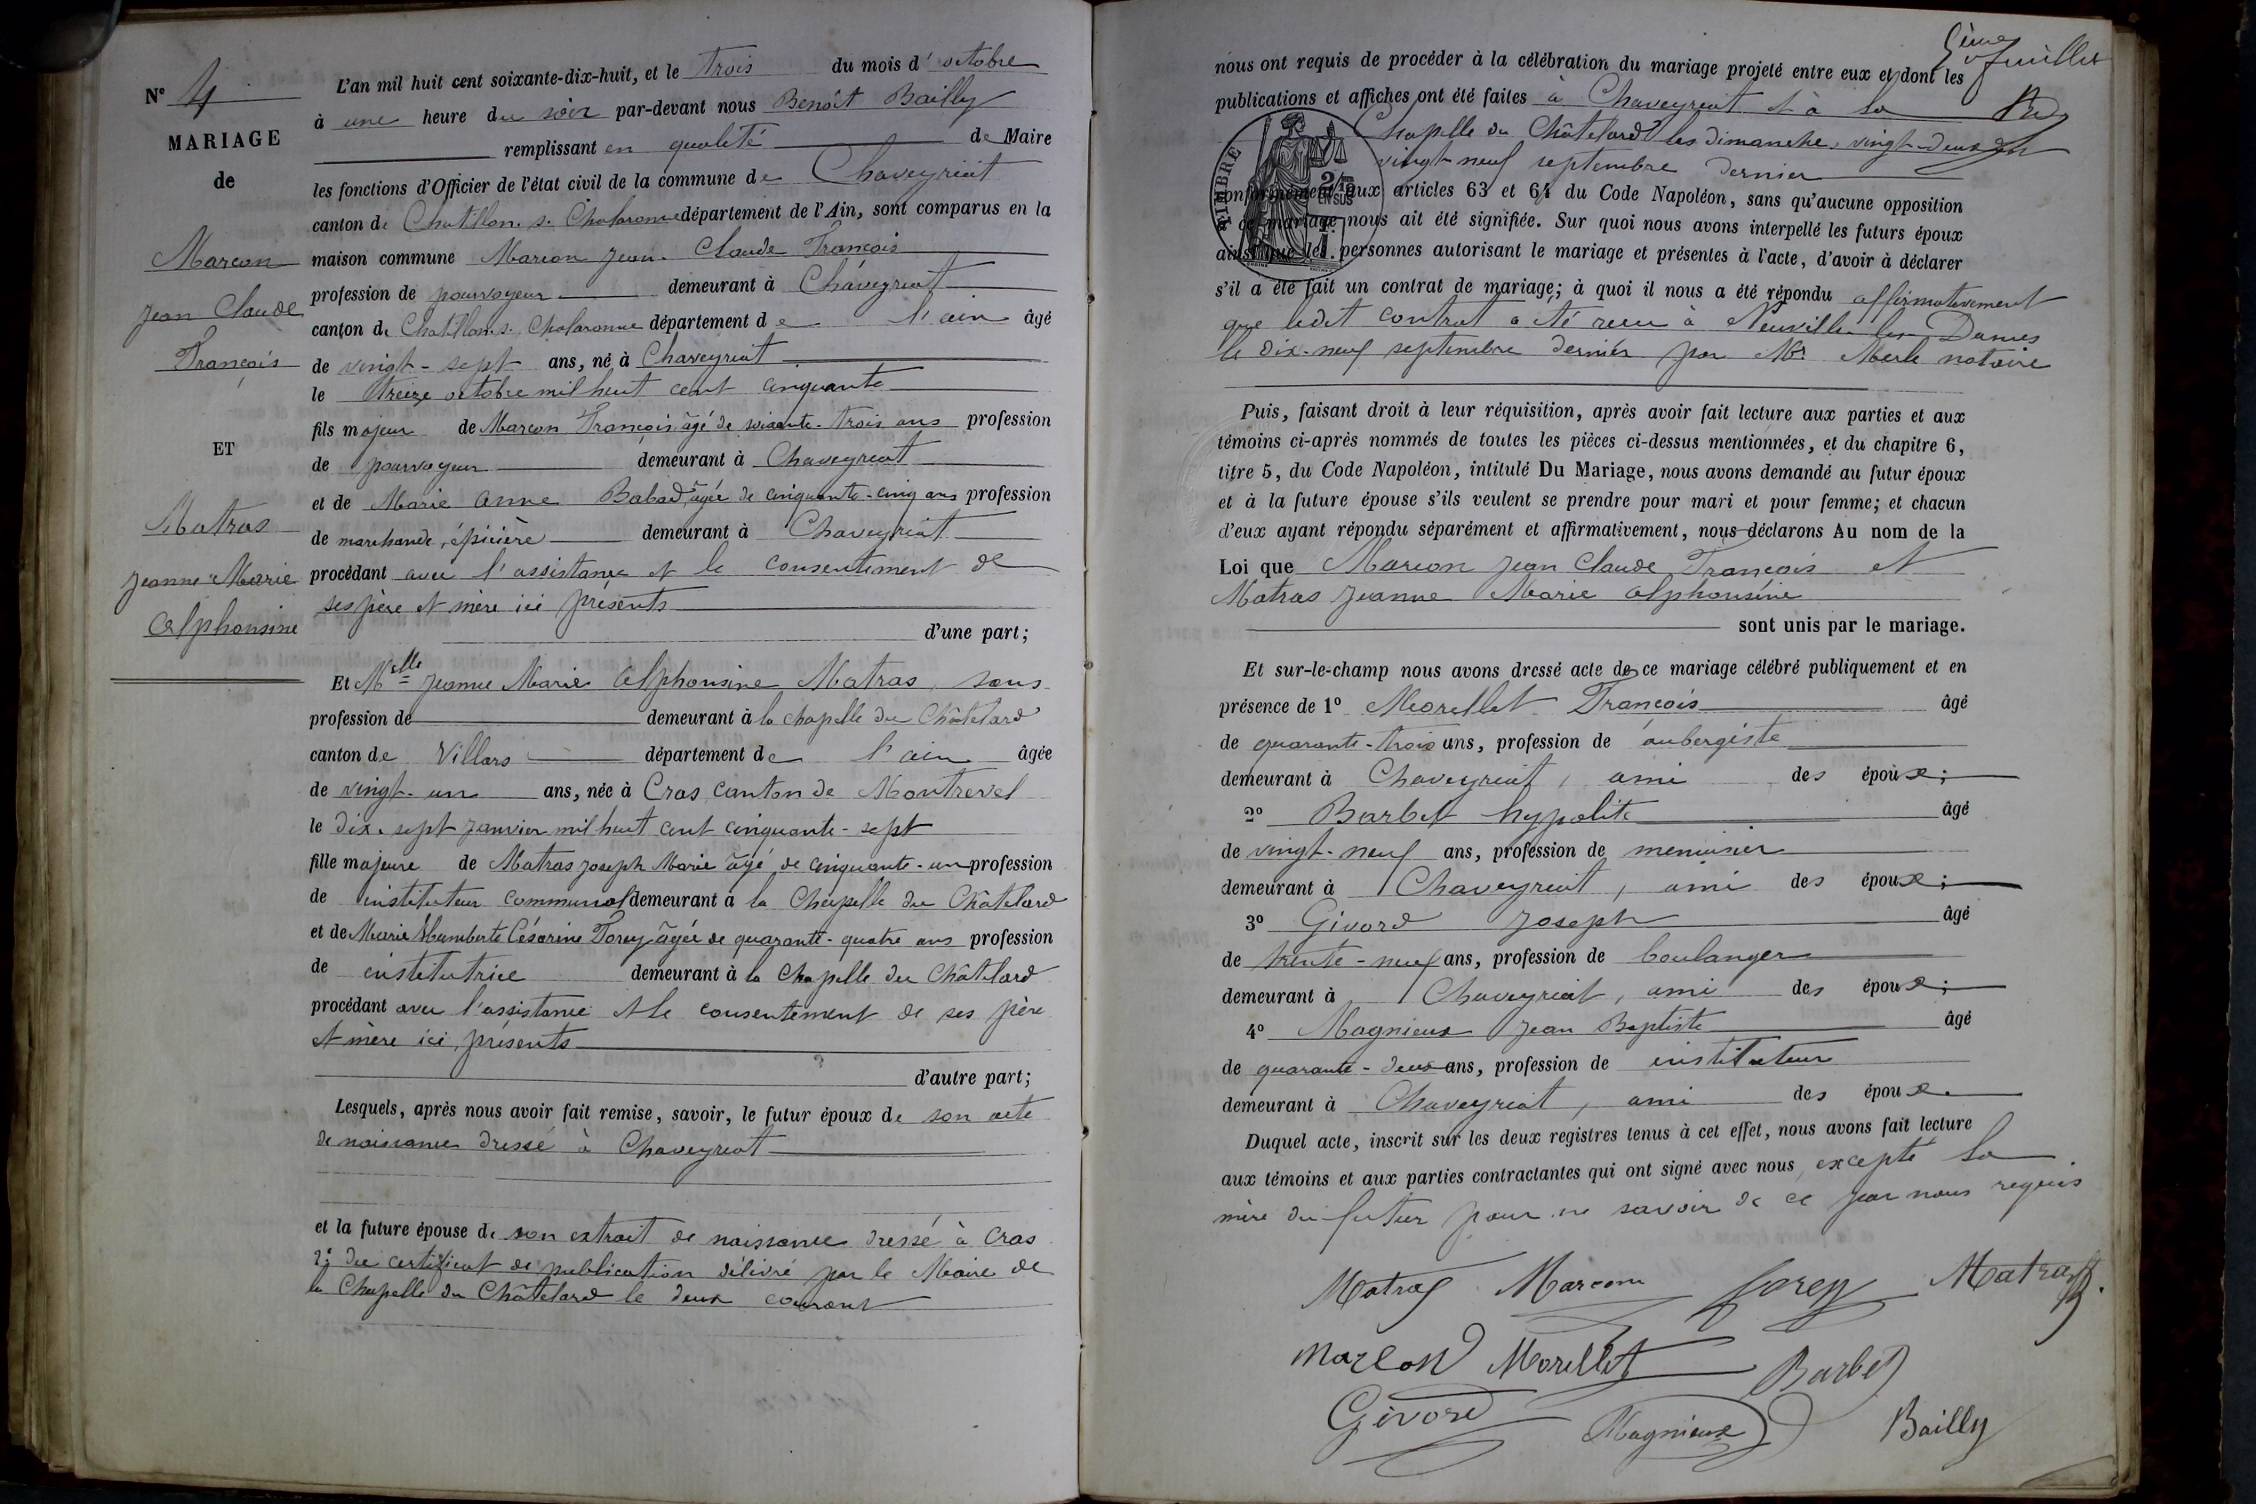 N° 4
MARIAGE
de
Marcon
Jean Claude
François
ET
Matras
Jeanne Marie
Alphonsine
L'an mil huit cent soixante-dix-huit, et le trois du mois d'octobre
à une heure du soir par-devant nous Benoît Bailly
remplissant en qualité de Maire
les fonctions d'Officier de l'état civil de la commune de Chaveyriat
canton de Chatillon s. Chalaronne département de l'Ain, sont comparus en la
maison commune Marcon Jean Claude François
profession de pourvoyeur demeurant à Chaveyriat
canton de Chatillon s. Chalaronne département de l'ain âgé
de vingt-sept ans, né à Chaveyriat
le treize octobre mil huit cent cinquante
fils majeur de Marcon François âgé de soixante-trois ans profession
de pourvoyeur demeurant à Chaveyriat
et de Marie Anne Babad âgée de cinquante-cinq ans profession
de marchande épicière demeurant à Chaveyriat
procédant avec l'assistance et le consentement de
ses père et mère ici présents
d'une part;
Et Melle Jeanne Marie Alphonsine Matras, sans
profession de demeurant à la chapelle du Châtelard
canton de Villars département de l'ain âgée
de vingt-un ans, née à Cras canton de Montrevel
le dix-sept janvier mil huit cent cinquante-sept
fille majeure de Matras Joseph Marie âgé de cinquante-un profession
de instituteur communal demeurant à la Chapelle du Châtelard
et de Marie Humberte Césarine Dorey âgée de quarante-quatre ans profession
de institutrice demeurant à la Chapelle du Châtelard
procédant avec l'assistance et le consentement de ses père
et mère ici présents
d'autre part;
Lesquels, après nous avoir fait remise, savoir, le futur époux de son acte
de naissance dressé à Chaveyriat
et la future épouse de son extrait de naissance dressé à Cras
2° du certificat de publication délivré par le Maire de
la Chapelle du Châtelard le deux courant
5ème feuillet
nous ont requis de procéder à la célébration du mariage projeté entre eux et dont les
publications et affiches ont été faites à Chaveyriat et à la
Chapelle du Châtelard les dimanches vingt-deux et
vingt-neuf septembre dernier
conformément aux articles 63 et 64 du Code Napoléon, sans qu'aucune opposition
à ce mariage nous ait été signifiée. Sur quoi nous avons interpellé les futurs époux
ainsi que les personnes autorisant le mariage et présentes à l'acte, d'avoir à déclarer
s'il a été fait un contrat de mariage; à quoi il nous a été répondu affirmativement
que ledit contrat a été reçu à Neuville les Dames
le dix-neuf septembre dernier par Mr Merle notaire
TIMBRE
Puis, faisant droit à leur réquisition, après avoir fait lecture aux parties et aux
témoins ci-après nommés de toutes les pièces ci-dessus mentionnées, et du chapitre 6,
titre 5, du Code Napoléon, intitulé Du Mariage, nous avons demandé au futur époux
et à la future épouse s'ils veulent se prendre pour mari et pour femme; et chacun
d'eux ayant répondu séparément et affirmativement, nous déclarons Au nom de la
Loi que Marcon Jean Claude François et
Matras Jeanne Marie Alphonsine
sont unis par le mariage.
Et sur-le-champ nous avons dressé acte de ce mariage célébré publiquement et en
présence de 1° Morellet François âgé
de quarante-trois ans, profession de aubergiste
demeurant à Chaveyriat, ami des époux;
2° Barbet hypolite âgé
de vingt-neuf ans, profession de menuisier
demeurant à Chaveyriat, ami des époux;
3° Givord Joseph âgé
de trente-neuf ans, profession de boulanger
demeurant à Chaveyriat, ami des époux;
4° Magnieux Jean Baptiste âgé
de quarante-deux ans, profession de instituteur
demeurant à Chaveyriat, ami des époux.
Duquel acte, inscrit sur les deux registres tenus à cet effet, nous avons fait lecture
aux témoins et aux parties contractantes qui ont signé avec nous excepté la
mère du futur pour ne savoir de ce par nous requis
Matras Marcon Dorey Matras
Marcon Morellet Barbet
Givord Magnieux Bailly